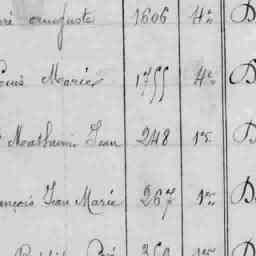 Auguste 1606 4e D
Louis Marie 1755 4e D
Mathurin Jean 248 1re D
François Jean Marie 267 1re D